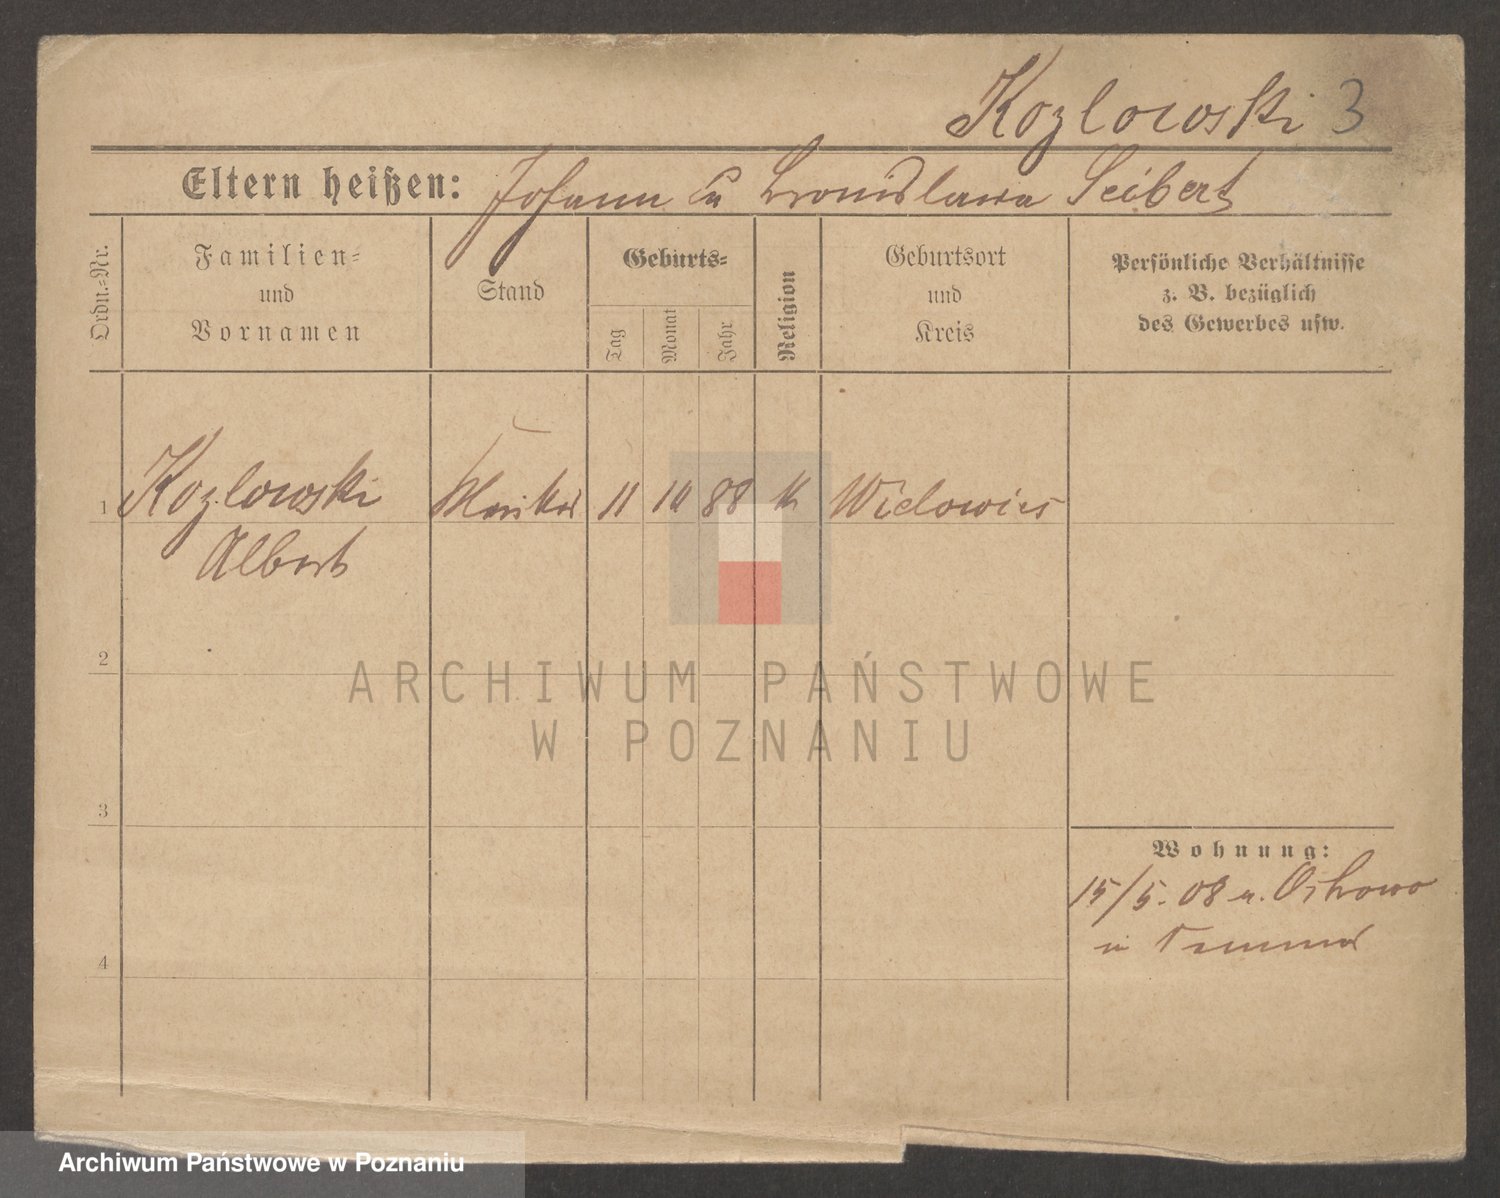 Kozlowski 3
Eltern heißen: Johann u Bronislawa Seibert
Ordn.-Nr.
Familien-
und
Vornamen
Stand
Geburts-
Tag
Monat
Jahr
Religion
Geburtsort
und
Kreis
Persönliche Verhältnisse
z. B. bezüglich
des Gewerbes usw.
1 Kozlowski 11 10 88 k Wielowies
Albert
2
ARCHIWUM PAŃSTWOWE
W POZNANIU
3
Wohnung:
15/5. 08
in
4
Archiwum Państwowe w Poznaniu